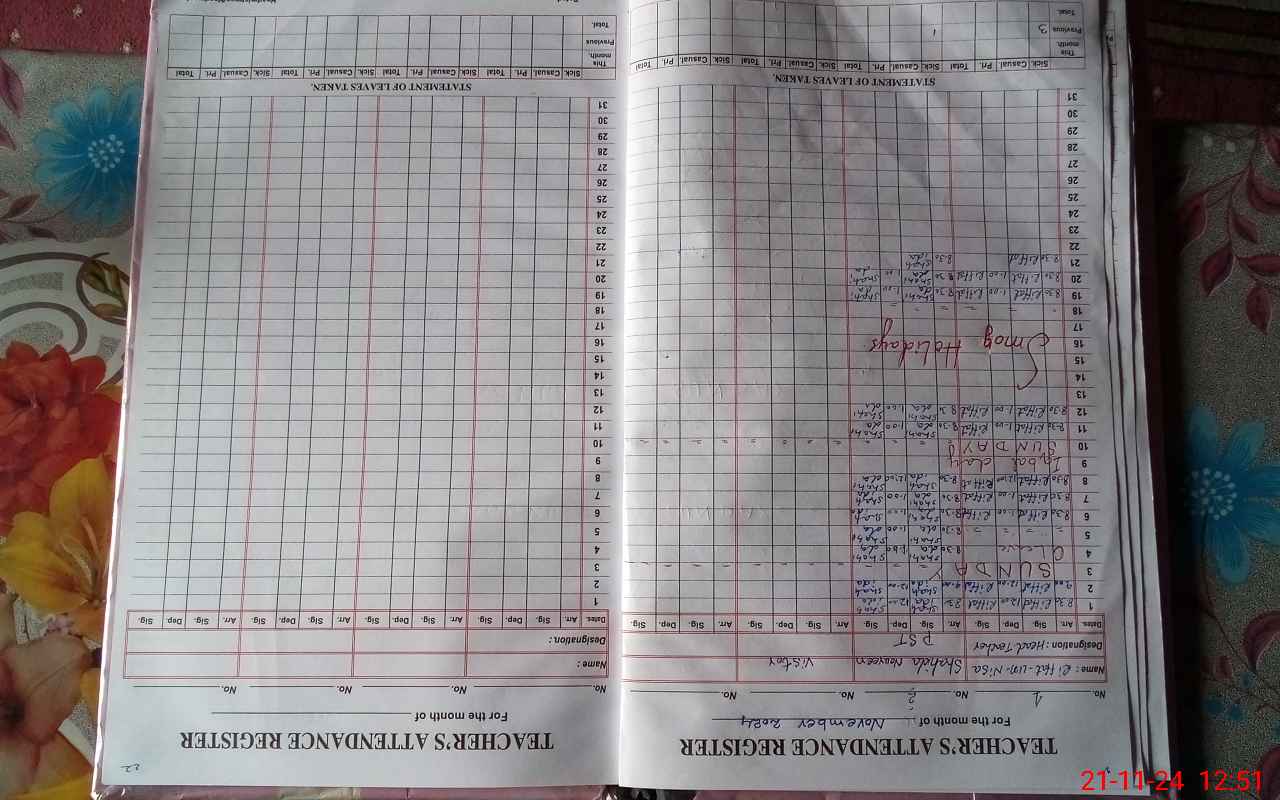 TEACHER'S ATTENDANCE REGISTER
For the month of November 2024
No. 1 No. 2 No. No.
Name : Riffat-um-Nisa Shahida Nasreen Vistor
Designation : Head Teacher PST
Dates. Arr. Sig. Dep. Sig. Arr. Sig. Dep. Sig. Arr. Sig. Dep. Sig. Arr. Sig. Dep. Sig.
1 8:30 Riffat 12:00 Riffat 8:30 Shahida 12:00 Shahida
2 9:00 Riffat 12:00 Riffat 9:00 Shahida 12:00 Shahida
3 SUNDAY
4 C Leave 8:30 Shahida 1:00 Shahida
5 " " " " 8:30 Shahida 1:00 Shahida
6 8:30 Riffat 1:00 Riffat 8:30 Shahida 1:00 Shahida
7 8:30 Riffat 1:00 Riffat 8:30 Shahida 1:00 Shahida
8 8:30 Riffat 12:00 Riffat 8:30 Shahida 12:00 Shahida
9 Iqbal day
10 SUNDAY
11 8:30 Riffat 1:00 Riffat 8:30 Shahida 1:00 Shahida
12 8:30 Riffat 1:00 Riffat 8:30 Shahida 1:00 Shahida
13
14
15
16 Smog Holidays
17
18
19 8:30 Riffat 1:00 Riffat 8:30 Shahida 1:00 Shahida
20 8:30 Riffat 1:00 Riffat 8:30 Shahida 1:00 Shahida
21 8:30 Riffat 8:30 Shahida
22
23
24
25
26
27
28
29
30
31
STATEMENT OF LEAVES TAKEN.
Sick. Casual. Pri. Total Sick. Casual. Pri. Total Sick. Casual. Pri. Total Sick. Casual. Pri. Total
This month.
Previous 3 1
Total.
22
TEACHER'S ATTENDANCE REGISTER
For the month of
No. No. No. No.
Name :
Designation :
Dates. Arr. Sig. Dep. Sig. Arr. Sig. Dep. Sig. Arr. Sig. Dep. Sig. Arr. Sig. Dep. Sig.
1
2
3
4
5
6
7
8
9
10
11
12
13
14
15
16
17
18
19
20
21
22
23
24
25
26
27
28
29
30
31
STATEMENT OF LEAVES TAKEN.
Sick. Casual. Pri. Total Sick. Casual. Pri. Total Sick. Casual. Pri. Total Sick. Casual. Pri. Total
This month.
Previous
Total.
21-11-24 12:51